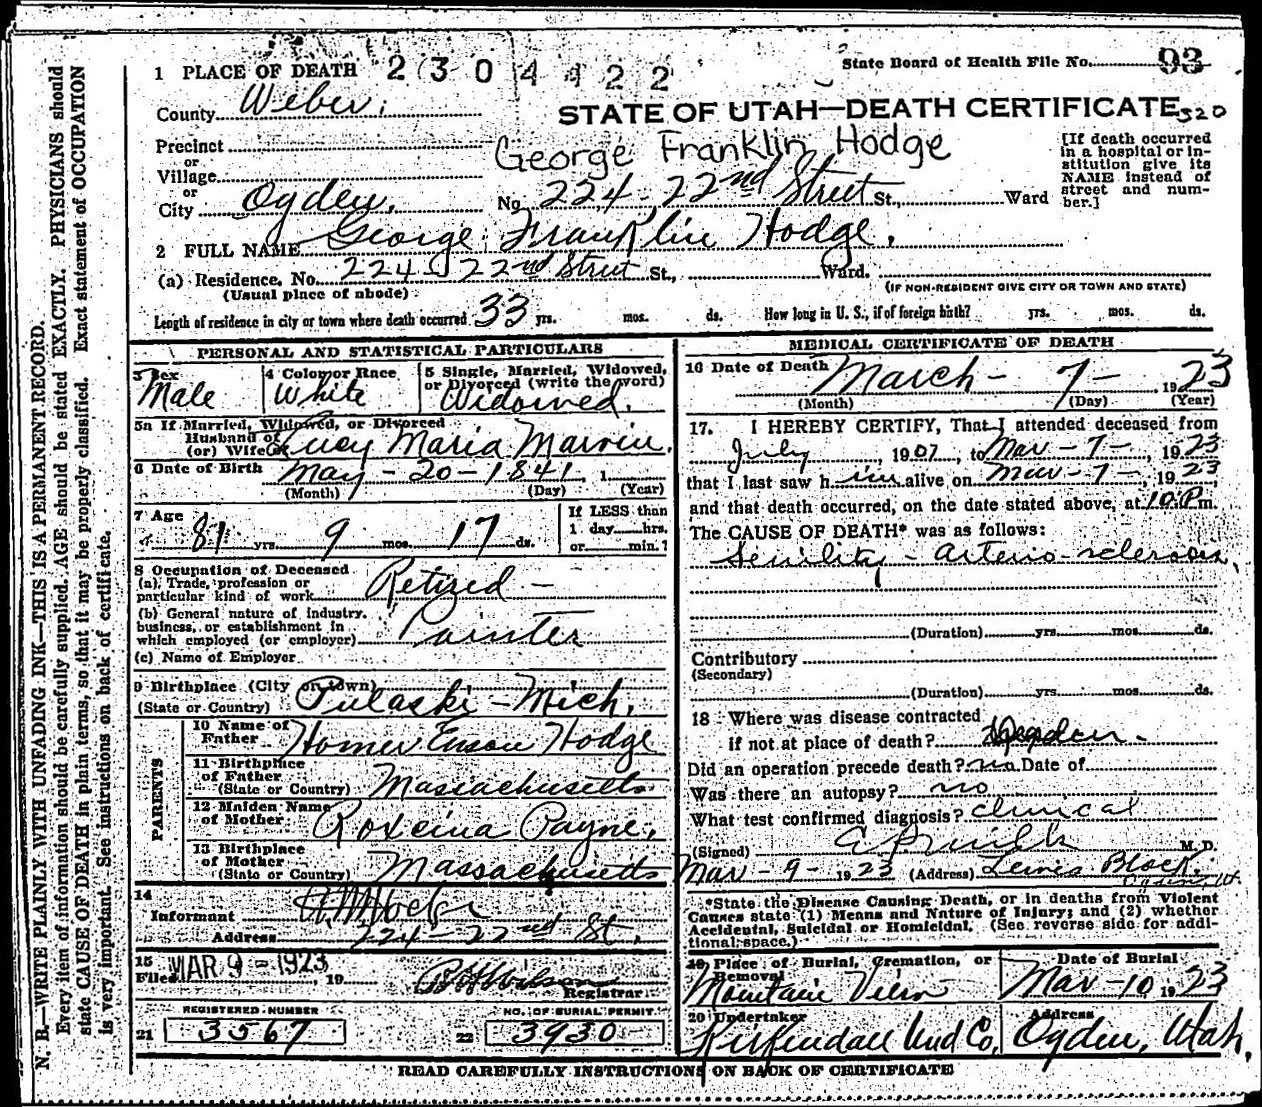 N. B.—WRITE PLAINLY WITH UNFADING INK—THIS IS A PERMANENT RECORD.
Every item of information should be carefully supplied. AGE should be stated EXACTLY. PHYSICIANS should
state CAUSE OF DEATH in plain terms, so that it may be properly classified. Exact statement of OCCUPATION
is very important. See instructions on back of certificate.
1 PLACE OF DEATH 2304122
State Board of Health File No. 93
County Weber.
STATE OF UTAH—DEATH CERTIFICATE 520
Precinct
George Franklin Hodge
[If death occurred in a hospital or institution give its NAME instead of street and number.]
or
Village
or
City Ogden, No. 224-22nd Street St., Ward
2 FULL NAME George Franklin Hodge.
(a) Residence. No. 224 22nd Street St., Ward.
(Usual place of abode) (IF NON-RESIDENT GIVE CITY OR TOWN AND STATE)
Length of residence in city or town where death occurred 33 yrs. mos. ds. How long in U. S., if of foreign birth? yrs. mos. ds.
PERSONAL AND STATISTICAL PARTICULARS
3 Sex Male
4 Color or Race White
5 Single, Married, Widowed, or Divorced (write the word) Widowed.
5a If Married, Widowed, or Divorced
Husband of
(or) Wife of Lucy Maria Marvin.
6 Date of Birth May - 20 - 1841, 1
(Month) (Day) (Year)
7 Age 81 yrs. 9 mos. 17 ds.
If LESS than
1 day hrs.
or min.?
8 Occupation of Deceased
(a) Trade, profession or
particular kind of work Retired -
(b) General nature of industry,
business, or establishment in
which employed (or employer) Painter
(c) Name of Employer
9 Birthplace (City or town)
(State or Country) Pulaski - Mich.
PARENTS
10 Name of
Father Homer Hodge
11 Birthplace
of Father
(State or Country) Massachusetts
12 Maiden Name
of Mother Payne,
13 Birthplace
of Mother
(State or Country) Massachusetts
14
Informant
Address 224-22nd St.
15
Filed MAR 9 - 1923, 19
Registrar
REGISTERED NUMBER
21 3567
NO. OF BURIAL PERMIT
22 3930
MEDICAL CERTIFICATE OF DEATH
16 Date of Death March - 7 - , 1923
(Month) (Day) (Year)
17. I HEREBY CERTIFY, That I attended deceased from
July, 1907, to Mar - 7 -, 1923
that I last saw him alive on Mar - 7 -, 1923,
and that death occurred, on the date stated above, at 10 P m.
The CAUSE OF DEATH* was as follows:
Senility - arterio-sclerosis.
(Duration) yrs. mos. ds.
Contributory
(Secondary)
(Duration) yrs. mos. ds.
18 Where was disease contracted
if not at place of death? Ogden.
Did an operation precede death? no Date of
Was there an autopsy? no
What test confirmed diagnosis? clinical
(Signed) M. D.
Mar - 9 - 1923 (Address) Lewis Block.
Ogden, Ut.
*State the Disease Causing Death, or in deaths from Violent
Causes state (1) Means and Nature of Injury; and (2) whether
Accidental, Suicidal or Homicidal. (See reverse side for addi-
tional space.)
19 Place of Burial, Cremation, or
Removal
Mountain View
Date of Burial
Mar - 10, 1923
20 Undertaker
Kirkendall Und Co,
Address
Ogden, Utah.
READ CAREFULLY INSTRUCTIONS ON BACK OF CERTIFICATE